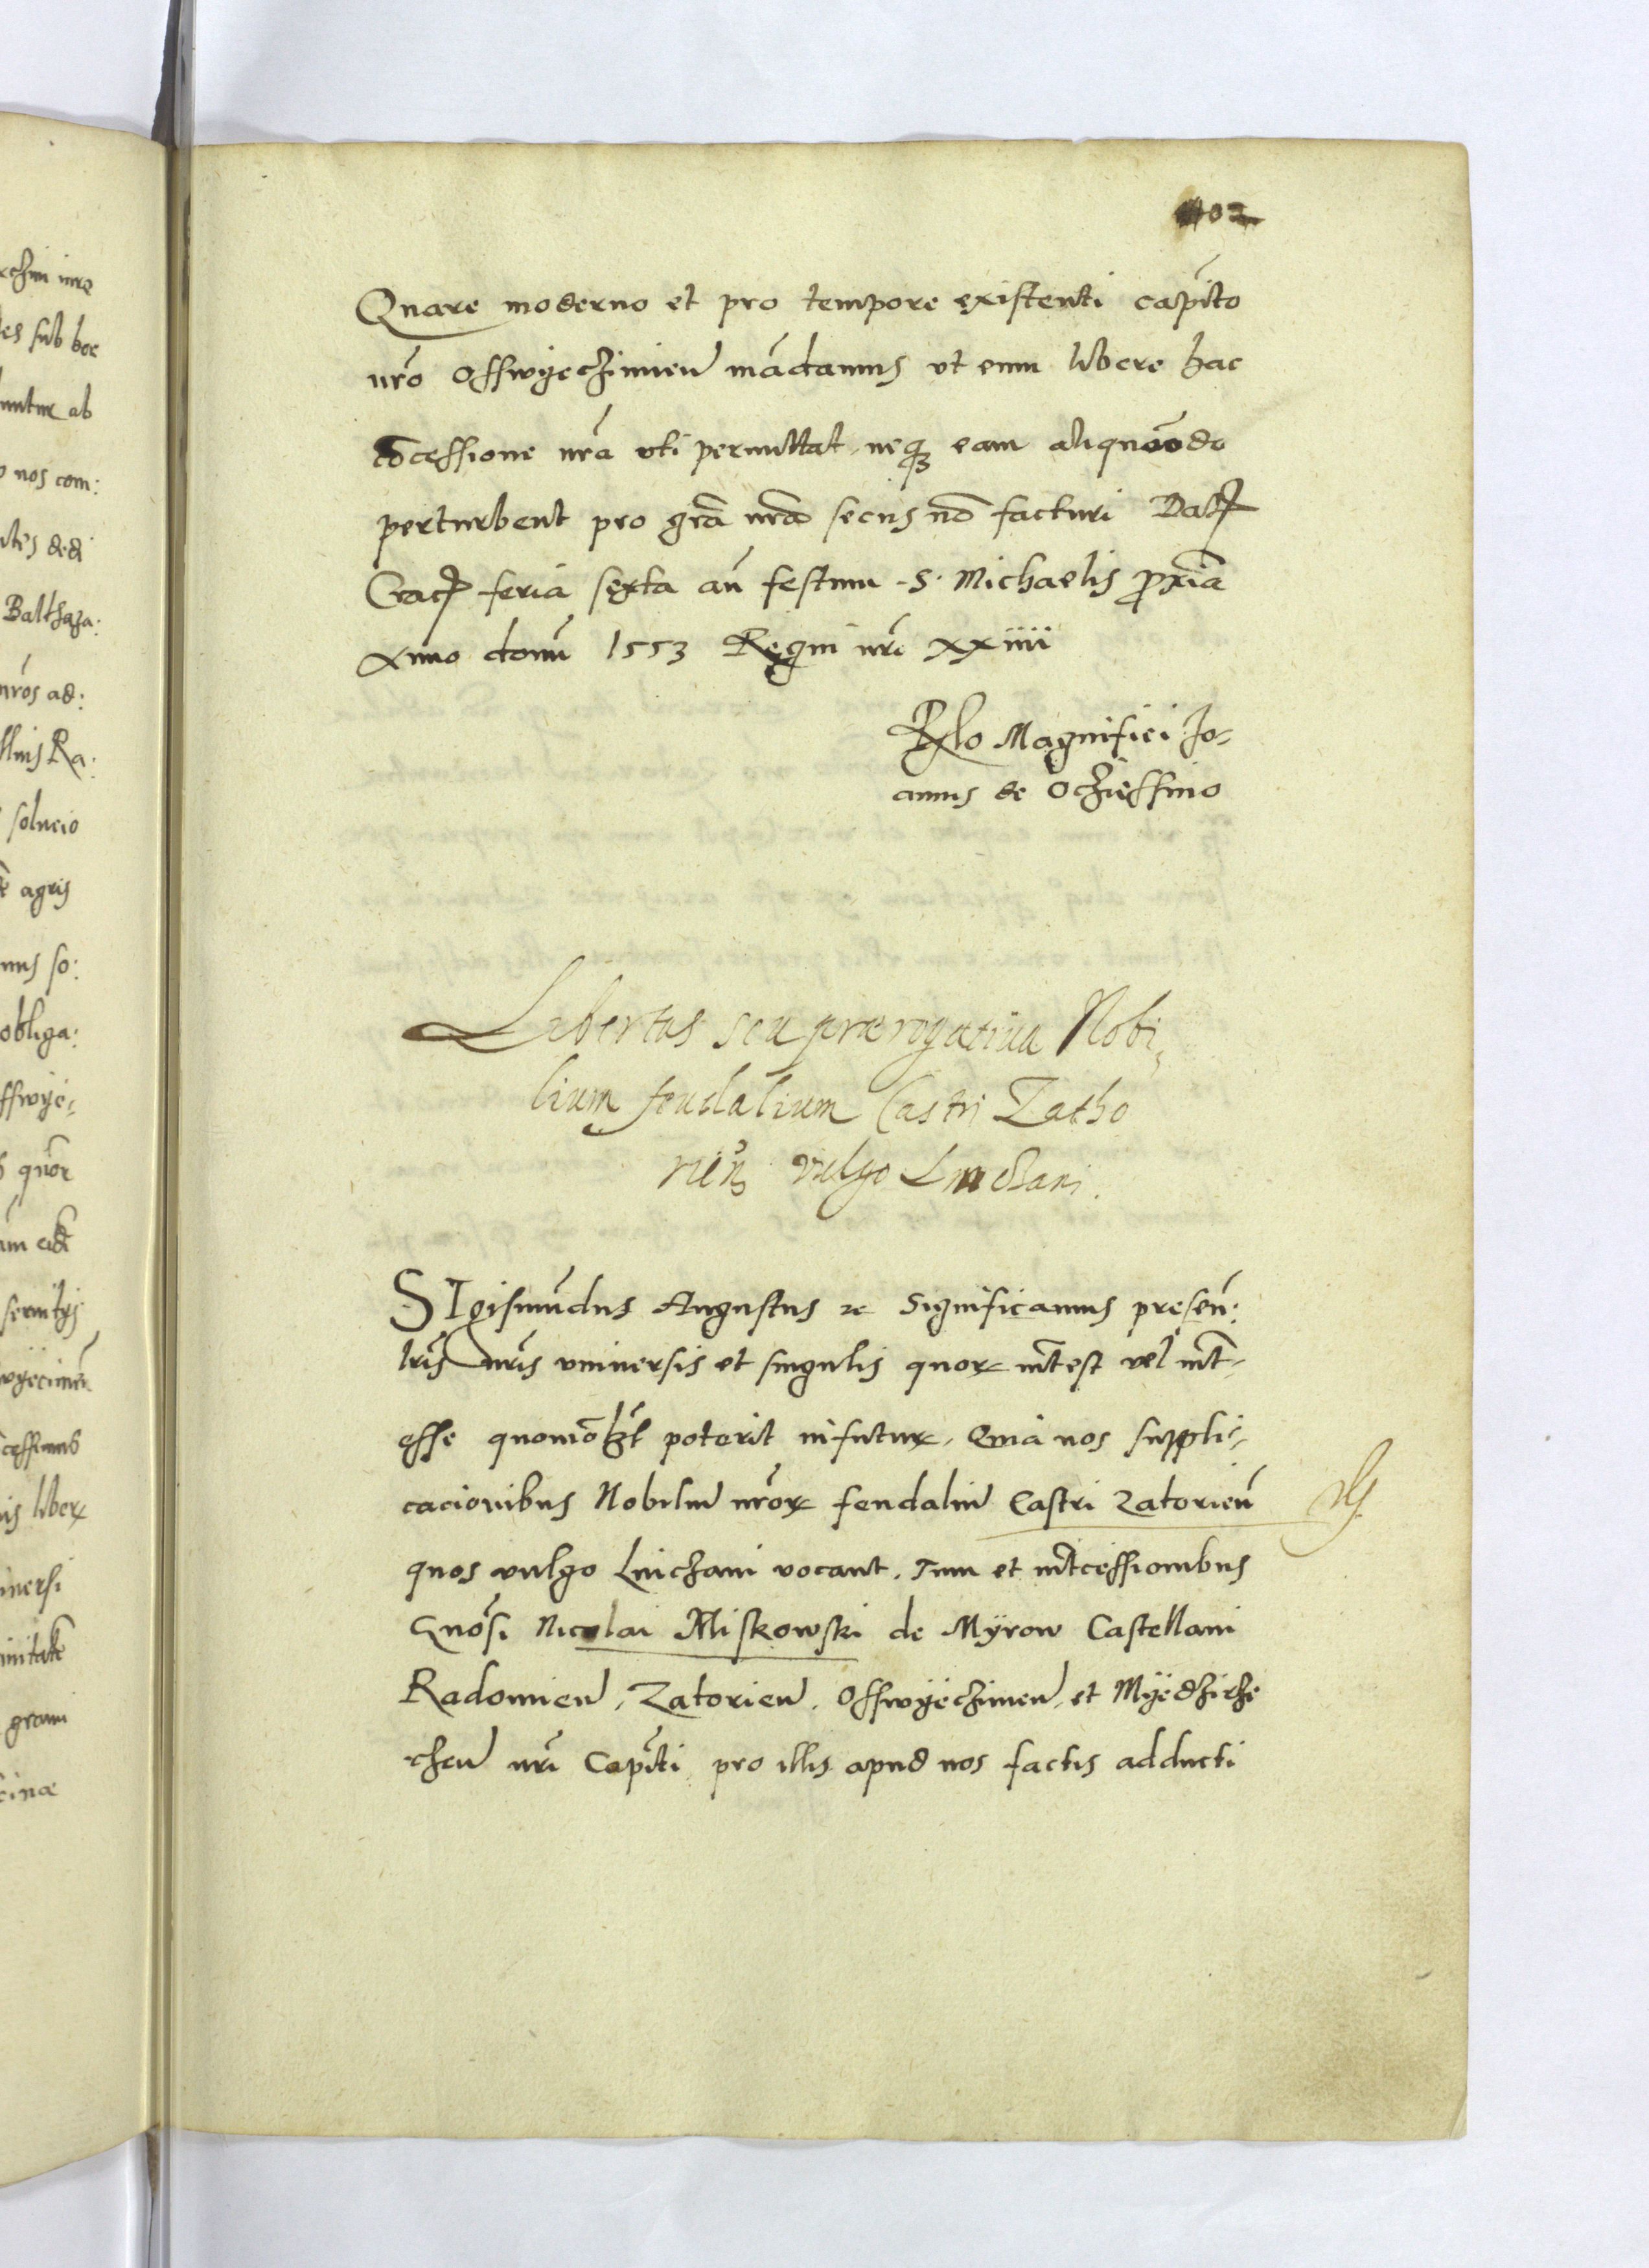 Quare moderno et pro tempore existenti capito
nro Osswyeczimien mādamus vt eum libere hac
cōcessione nra vti permittat, neq eam aliquoōdo
perturbent pro gra nra secus nō facturi Dat
Crac feria sexta an festum S. Michaelis proxia
Anno domi 1553 Regni nri xxiiii
Rlo Magnifici Jo-
annis de Ocziessino
Libertas seu prærogatiua Nobi,
lium feudalium Castri Zatho
rien vulgo
SIgismūdus Augustus zc Significamus presen:
lris nris vniuersis et singulis quor intest vel int-
esse quomōlzt poterit infutur, Quia nos suppli-
cacionibus Nobiliu nror feudaliu Castri Zatorien
quos vulgo vocant, Tum et intcessionibus
Gnosi Nicolai Miskowski de Myrow Castellani
Radomien, Zatorien, Osswyeczimen, et Myedzirze
czen nri Capiti pro illis apud nos factis adducti
rchim iure
des sub hoc
untur ab
nos com:
dedi
Balthaza:
nros ad:
Ra:
solucio
agris
mus so:
obliga:
sswye-
quor
seruitys
cessimus
liber
iuersi
graui
cinæ